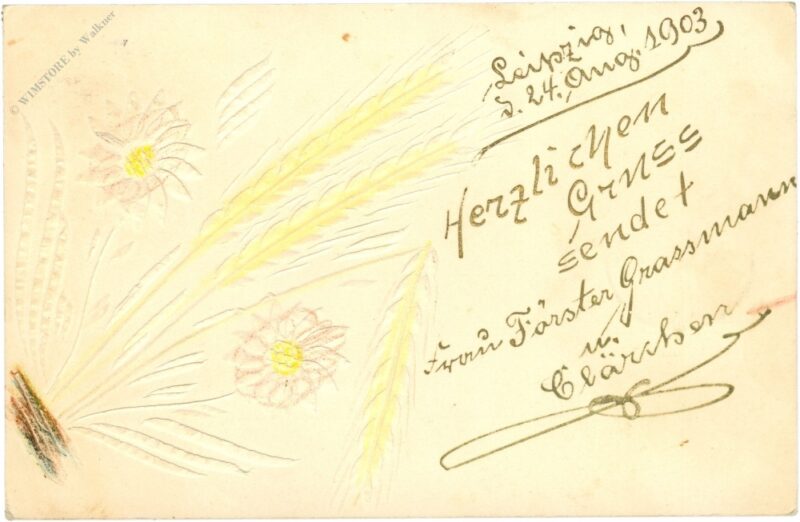 © WIMSTORE by Walkner
Leipzig,
d. 24. Aug. 1903
Herzlichen
Gruss
sendet
Frau Förster Grassmann
u.
Clärchen